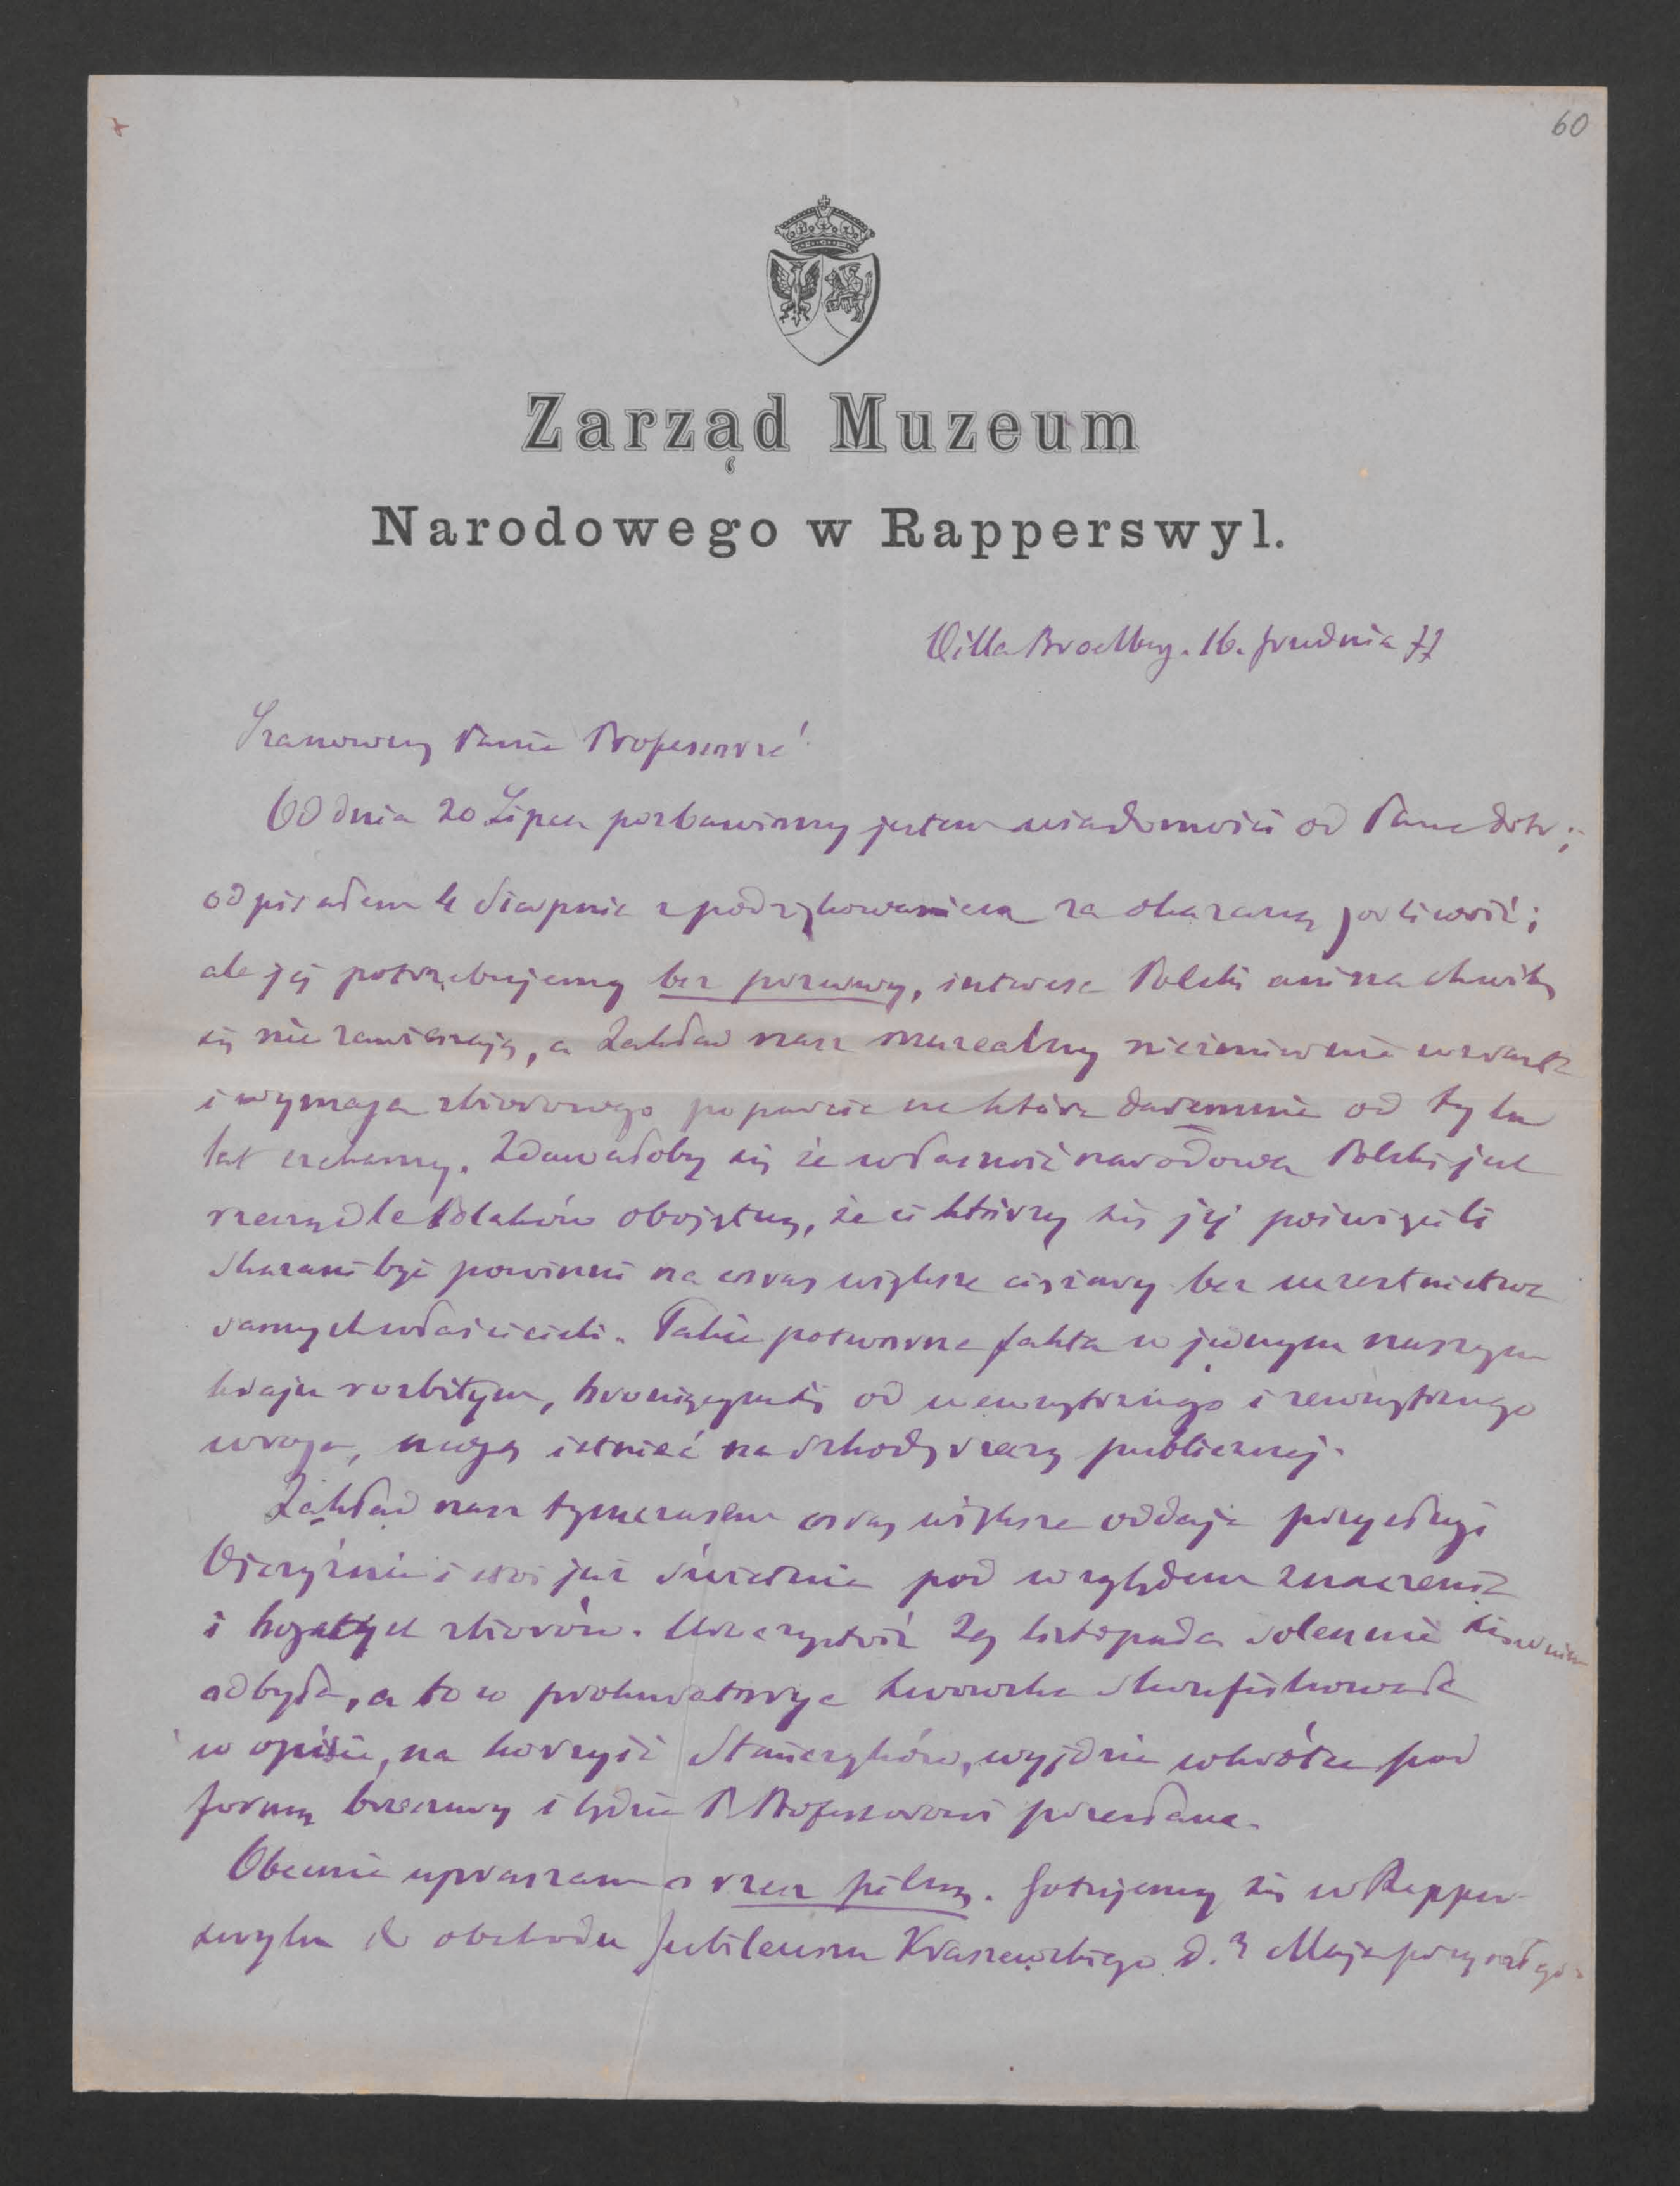 60
Zarząd Muzeum
Narodowego w Rapperswyl.
Villa Broelberg. 16. grudnia 77
Szanowny Panie Profesorze!
Od dnia 20 Lipca pozbawiony jestem wiadomości od Pana dobr.;
odpisałem 4 Sierpnia z podziękowaniem za okazaną gorliwość;
ale jej potrzebujemy bez przerwy, interesa Polski ani na chwilę
się nie zawieszają, a Zakład nasz muzealny niezmiernie wzrasta
i wymaga zbiorowego poparcia na które daremnie od tylu
lat czekamy. Zdawałoby się że własność narodowa Polski jest
rzeczą dla Polaków obojętną, że ci którzy się jej poświęcili
skazani być powinni na coraz większe ciężary bez uczestnictwa
samych właścicieli. Takie potworne fakta w jednym naszym
kraju rozbitym, broniącym się od wewnętrznego i zewnętrznego
wroga, mogą istnieć na szkodę rzeczy publicznej.
Zakład nasz tymczasem coraz większe oddaje przysługi
Ojczyźnie i stoi już świetnie pod względem znaczenia
i bogatych zbiorów. Uroczystość 29 listopada solennie się w nim
odbyła, a to co prokuratorya lwowska skonfiskowała
w opisie, na korzyść Stańczyków, wyjdzie wkrótce pod
formą broszury i będzie P. Profesorowi przesłane.
Obecnie upraszam o rzecz pilną. Gotujemy się w Rappers-
wylu do obchodu Jubileuszu Kraszewskiego d. 3 Maja przyszłego